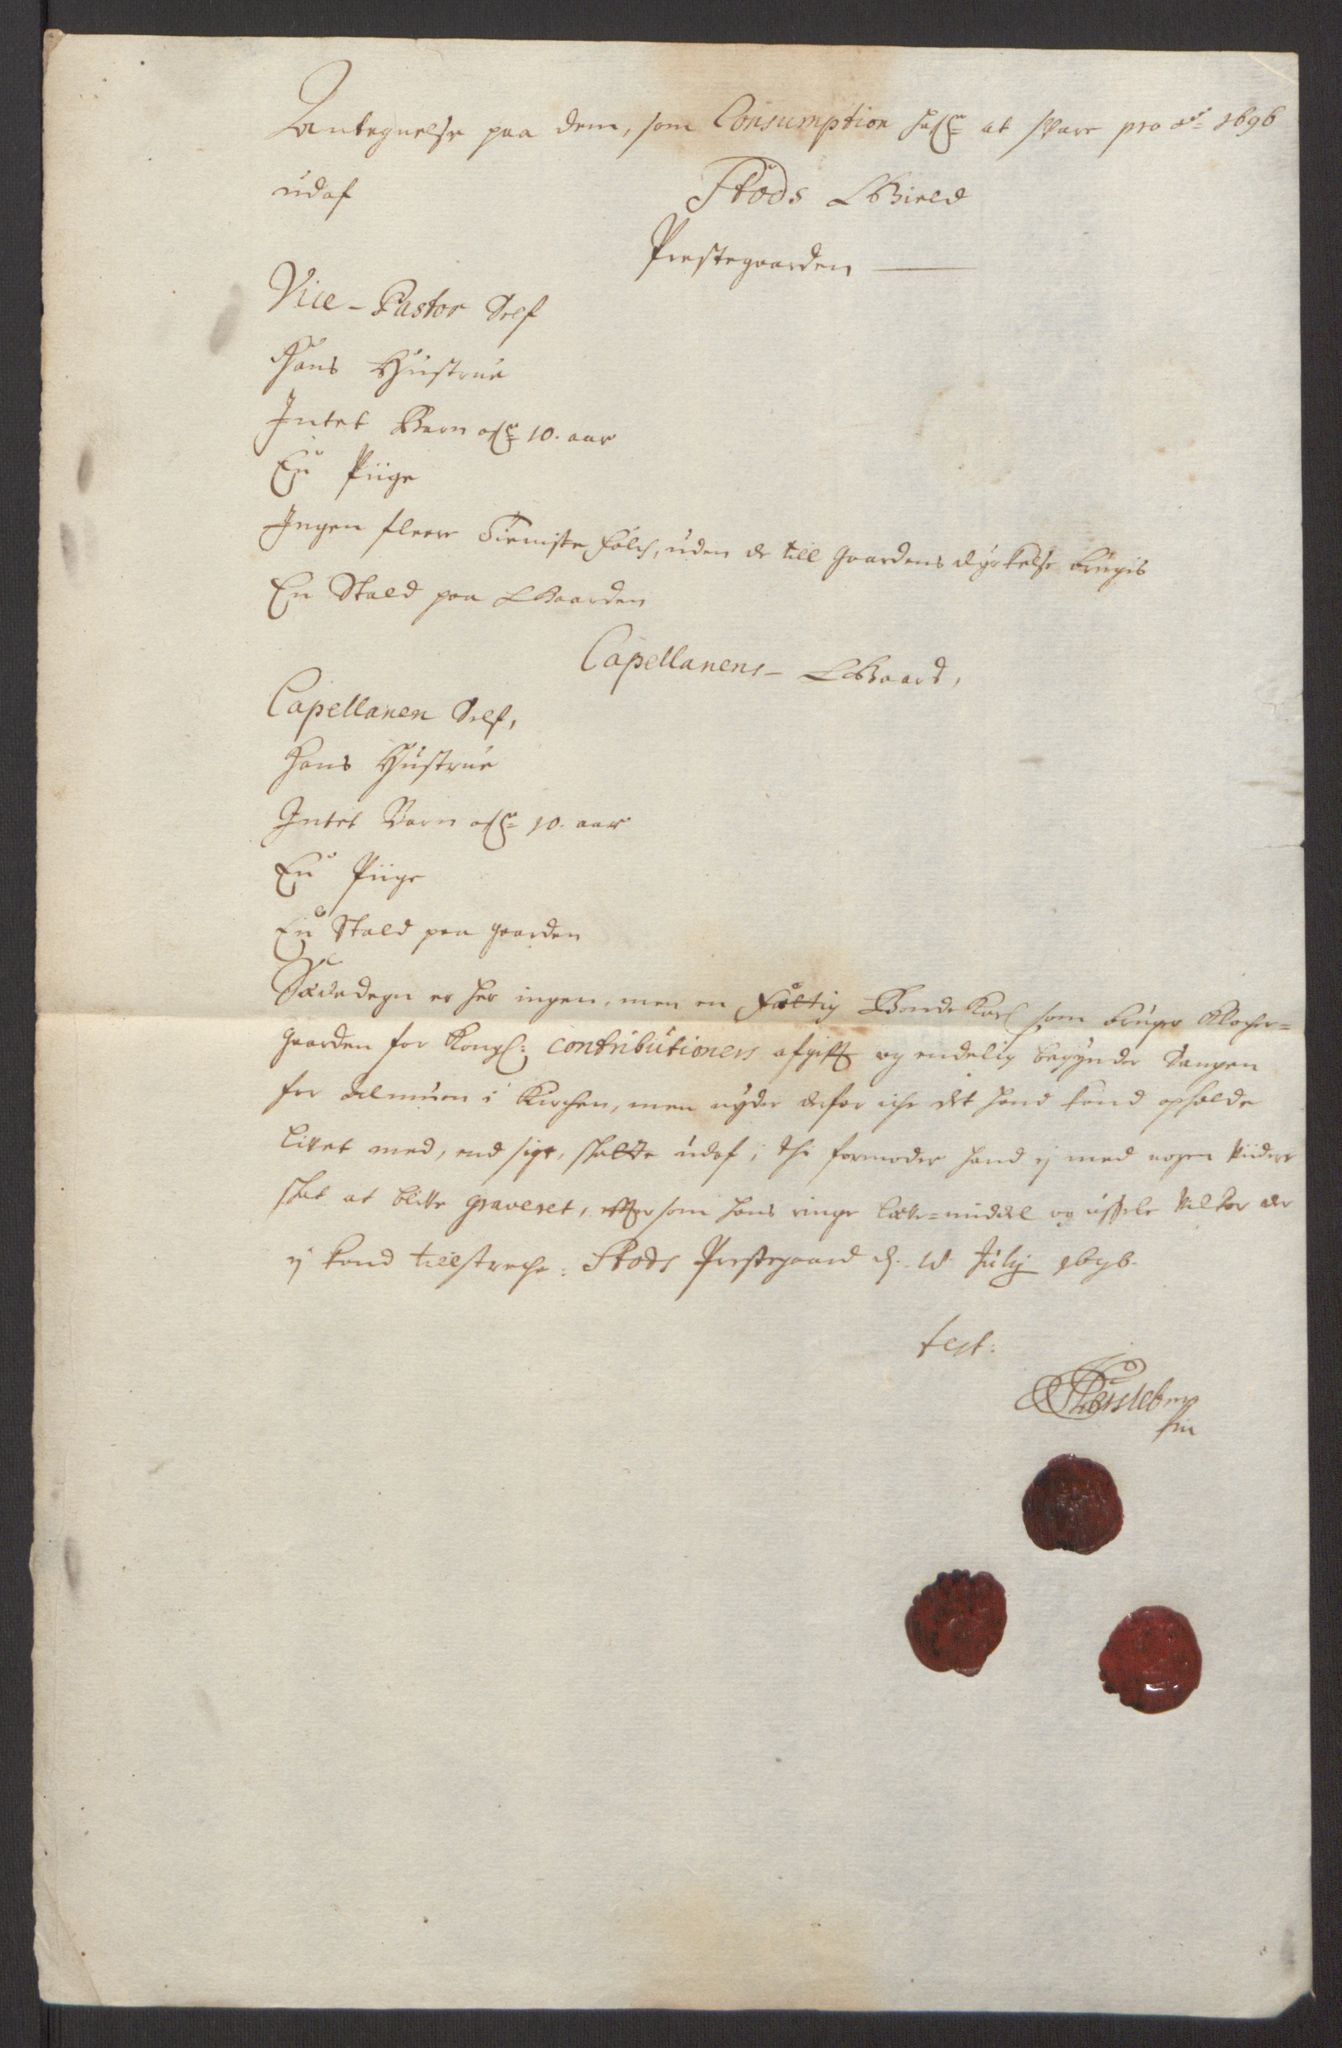 Antegnelse paa dem, som Consumption hafr at svare pro Ao 1696
udaf Stods Gield
Prestegaarden
Vice-Pastor Self
Hans Hustrue
Intet Barn ofr 10. aar
En Piige
Ingen fleere Tienniste folch, uden de till Gaardens dyrkelse brugis
En Stald paa Gaarden
Capellanens Gaard,
Capellanen Self,
Hans Hustrue
Intet Barn ofr 10. aar
En Piige
En Stald paa gaarden
Sædedegn er her ingen, men en fattig Bonde Karl som bruger Klocher=
gaarden for Kongl: contributioners afgifft og endelig begynder Sangen
for Almuen i Kirchen, men nyder derfor iche det hand kand opholde
livet med, end sige, skatte udaf; thi formoder hand ej med nogen viidere
skat at blive graveret, effter som hans ringe leve=middel og ussele vilkor der
ej kand tillstreche: Stods Prestegaard d. 18 July 1696.
test: